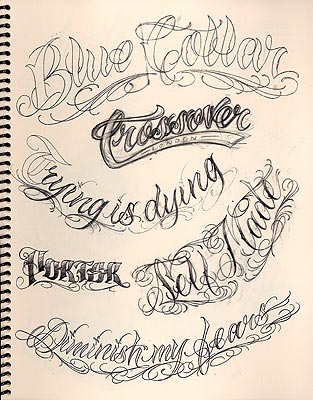 Blue Collar
Crossover
LONDON
Trying is dying
Self Made
PORTER
Diminish my fears